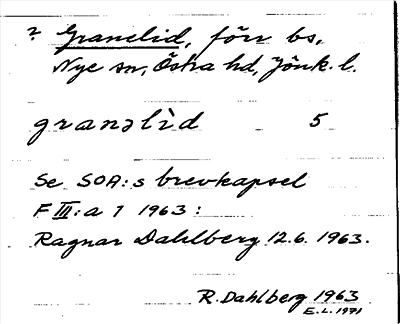 ? Granelid, förr bs,
Nye sn, Östra hd, Jönk. l.
granəlìd 5
Se SOA:s brevkapsel
F III:a 1 1963:
Ragnar Dahlberg 12.6. 1963.
R. Dahlberg 1963
E.L. 1971